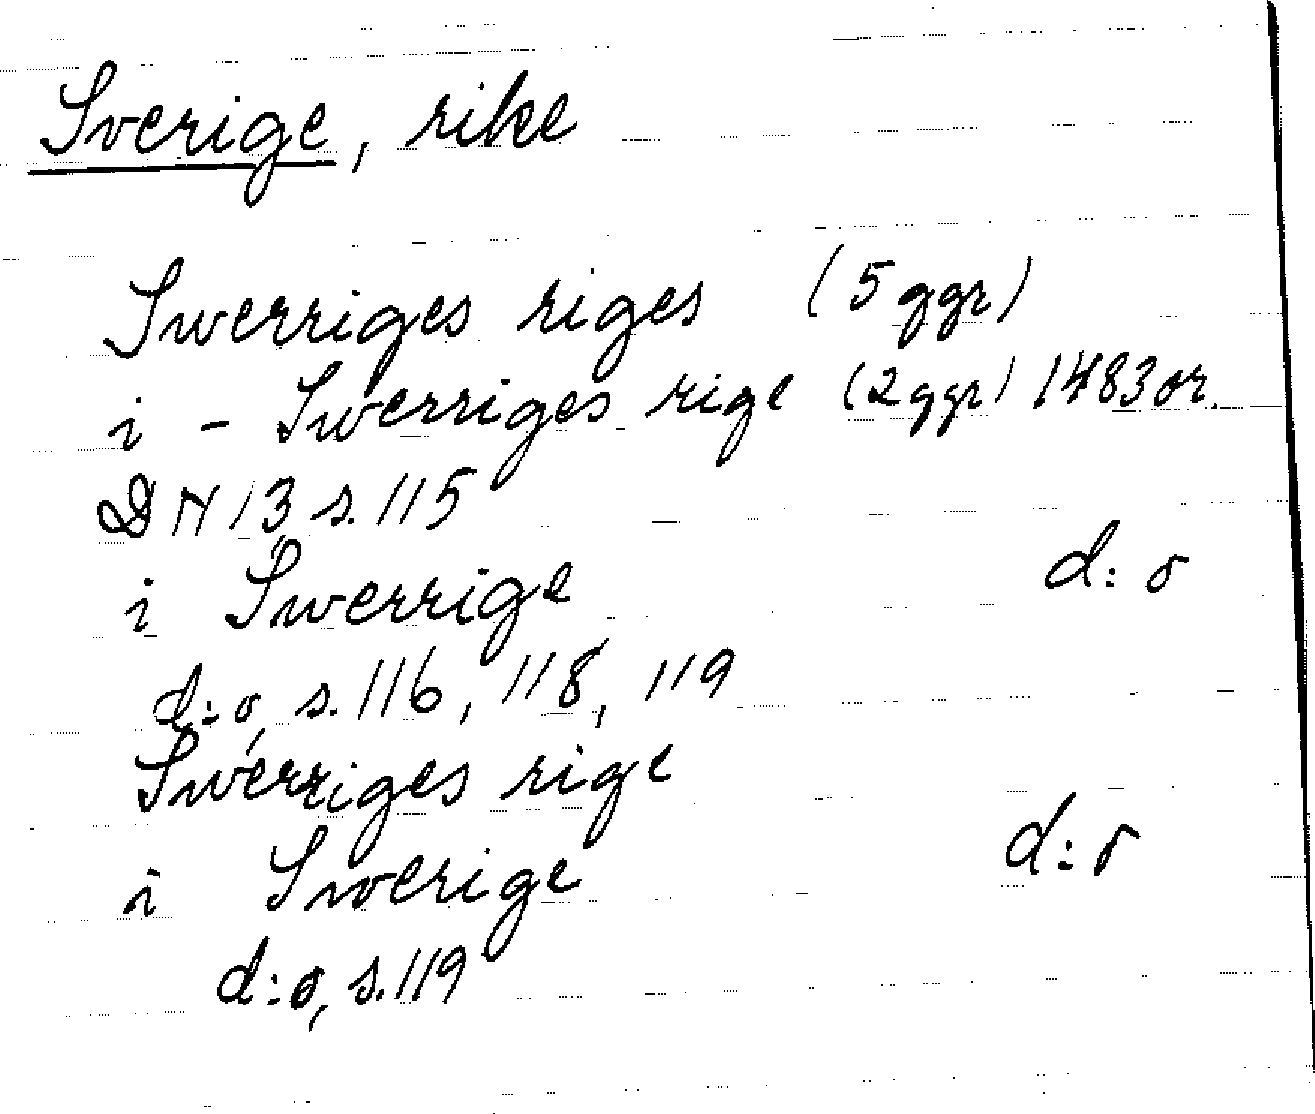 Sverige, rike
Swerriges riges (5 ggr)
i - Swerriges rige (2 ggr) 1483 or.
DN 13 s. 115
i Swerrige d:o
d:o, s. 116, 118, 119
Swerriges rige
i Swerige d:o
d:o, s. 119